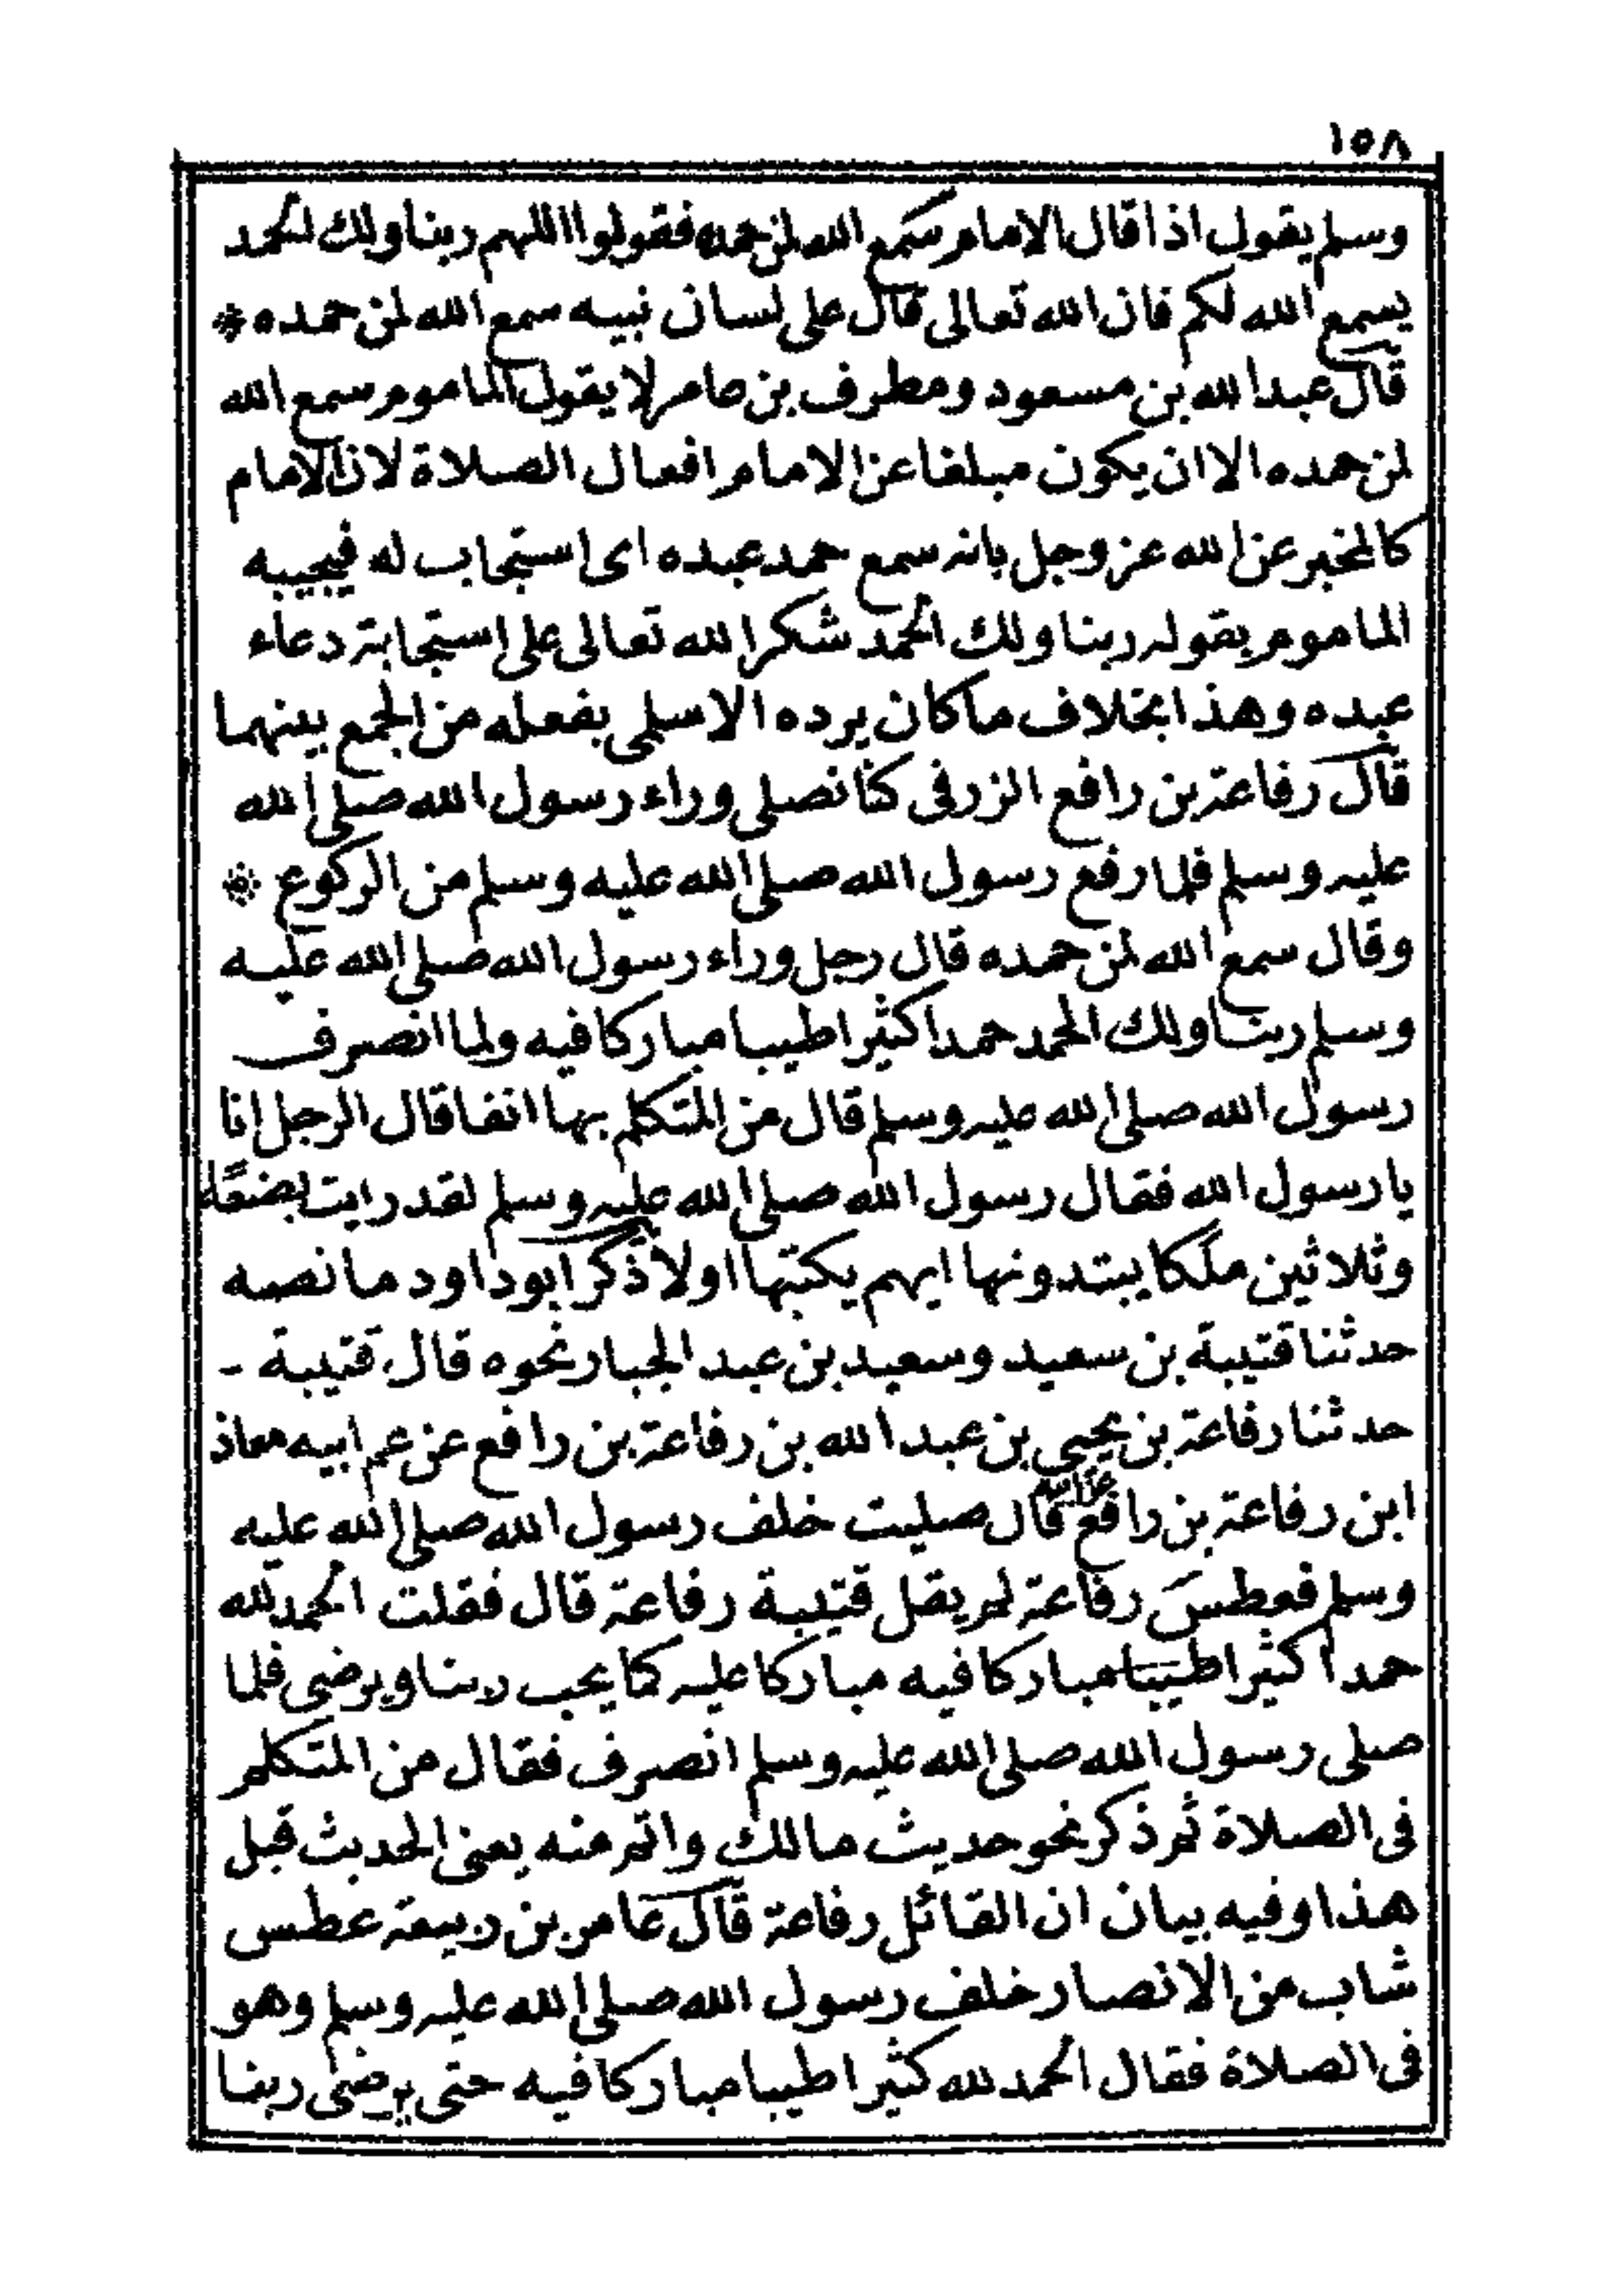 ١٥٨
وسلم يقول اذا قال الامام سمع الله لمن حمده فقولوا اللهم ربنا ولك الحمد
يسمع الله لكم فان الله تعالى قال على لسان نبيه سمع الله لمن حمده *
قال عبد الله بن مسعود ومطرف بن عامر لا يقول الماموم سمع الله
لمن حمده الا ان يكون مبلغا عن الامام افعال الصلاة لان الامام
كالمخبر عن الله عز وجل بانه سمع حمد عبده اى استجاب له فيجيبه
الماموم بقوله ربنا ولك الحمد شكرا لله تعالى على استجابة دعاء
عبده وهذا بخلاف ما كان يرده الاسلمى بفعله من الجمع بينهما
قال رفاعة بن رافع الزرقى كنا نصلى وراء رسول الله صلى الله
عليه وسلم فلما رفع رسول الله صلى الله عليه وسلم من الركوع *
وقال سمع الله لمن حمده قال رجل وراء رسول الله صلى الله عليه
وسلم ربنا ولك الحمد حمدا كثيرا طيبا مباركا فيه ولما انصرف
رسول الله صلى الله عليه وسلم قال من المتكلم بها انفا قال الرجل انا
يا رسول الله فقال رسول الله صلى الله عليه وسلم لقد رايت بضعة
وثلاثين ملكا يبتدونها ايهم يكتبها اولا ذكر ابو داود ما نصه
حدثنا قتيبة بن سعيد وسعيد بن عبد الجبار نحوه قال قتيبة -
حدثنا رفاعة بن يحيى بن عبد الله بن رفاعة بن رافع عن عم ابيه معاذ
ابن رفاعة بن رافع عن ابيه قال صليت خلف رسول الله صلى الله عليه
وسلم فعطس رفاعة لم يقل قتيبة رفاعة قال فقلت الحمد لله
حمدا كثيرا طيبا مباركا فيه مباركا عليه كما يحب ربنا ويرضى فلما
صلى رسول الله صلى الله عليه وسلم انصرف فقال من المتكلم
فى الصلاة ثم ذكر نحو حديث مالك واتم منه يعنى الحديث قبل
هذا وفيه بيان ان القائل رفاعة قال عامر بن ربيعة عطس
شاب من الانصار خلف رسول الله صلى الله عليه وسلم وهو
فى الصلاة فقال الحمد لله كثيرا طيبا مباركا فيه حتى يرضى ربنا